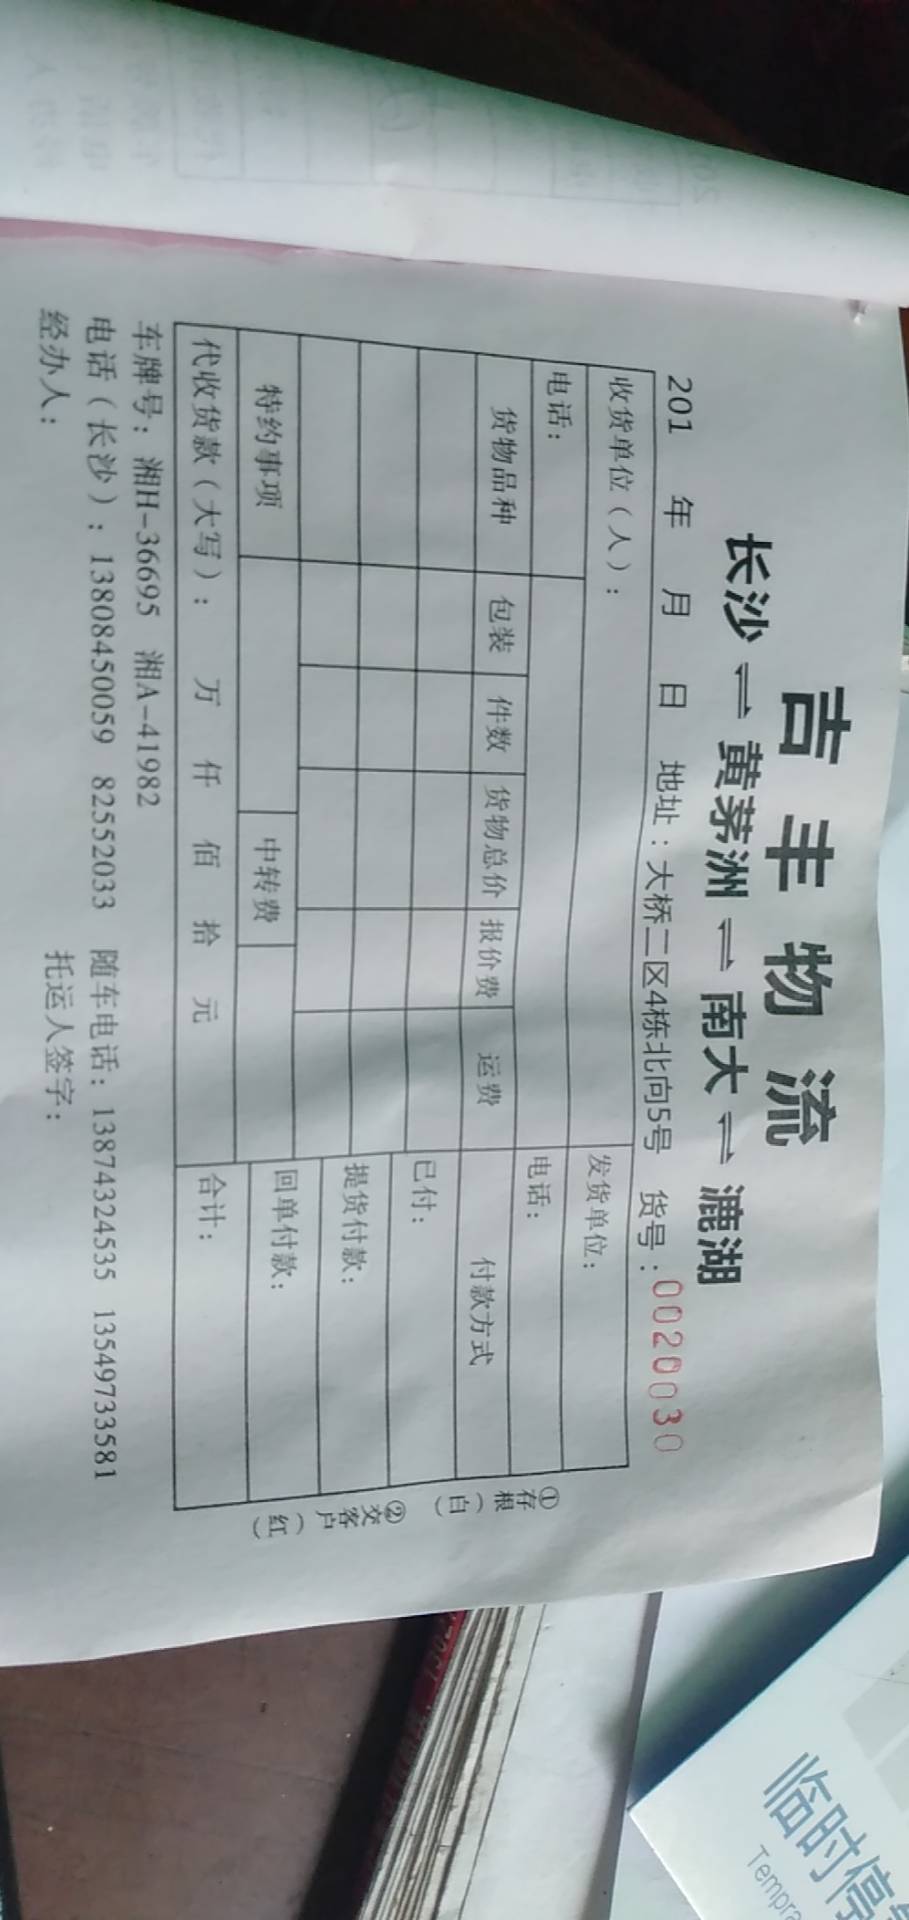 吉丰物流
长沙⇌黄茅洲⇌南大⇌漉湖
201 年 月 日 地址：大桥二区4栋北向5号 货号：0020030
收货单位（人）： 发货单位：
电话： 电话：
货物品种 包装 件数 货物总价 报价费 运费 付款方式
已付：
提货付款：
特约事项 中转费 回单付款：
代收货款（大写）： 万 仟 佰 拾 元 合计：
车牌号：湘H-36695 湘A-41982
电话（长沙）：13808450059 82552033 随车电话：13874324535 13549733581
经办人： 托运人签字：
①存根（白）
②交客户（红）
临时停
Tempra